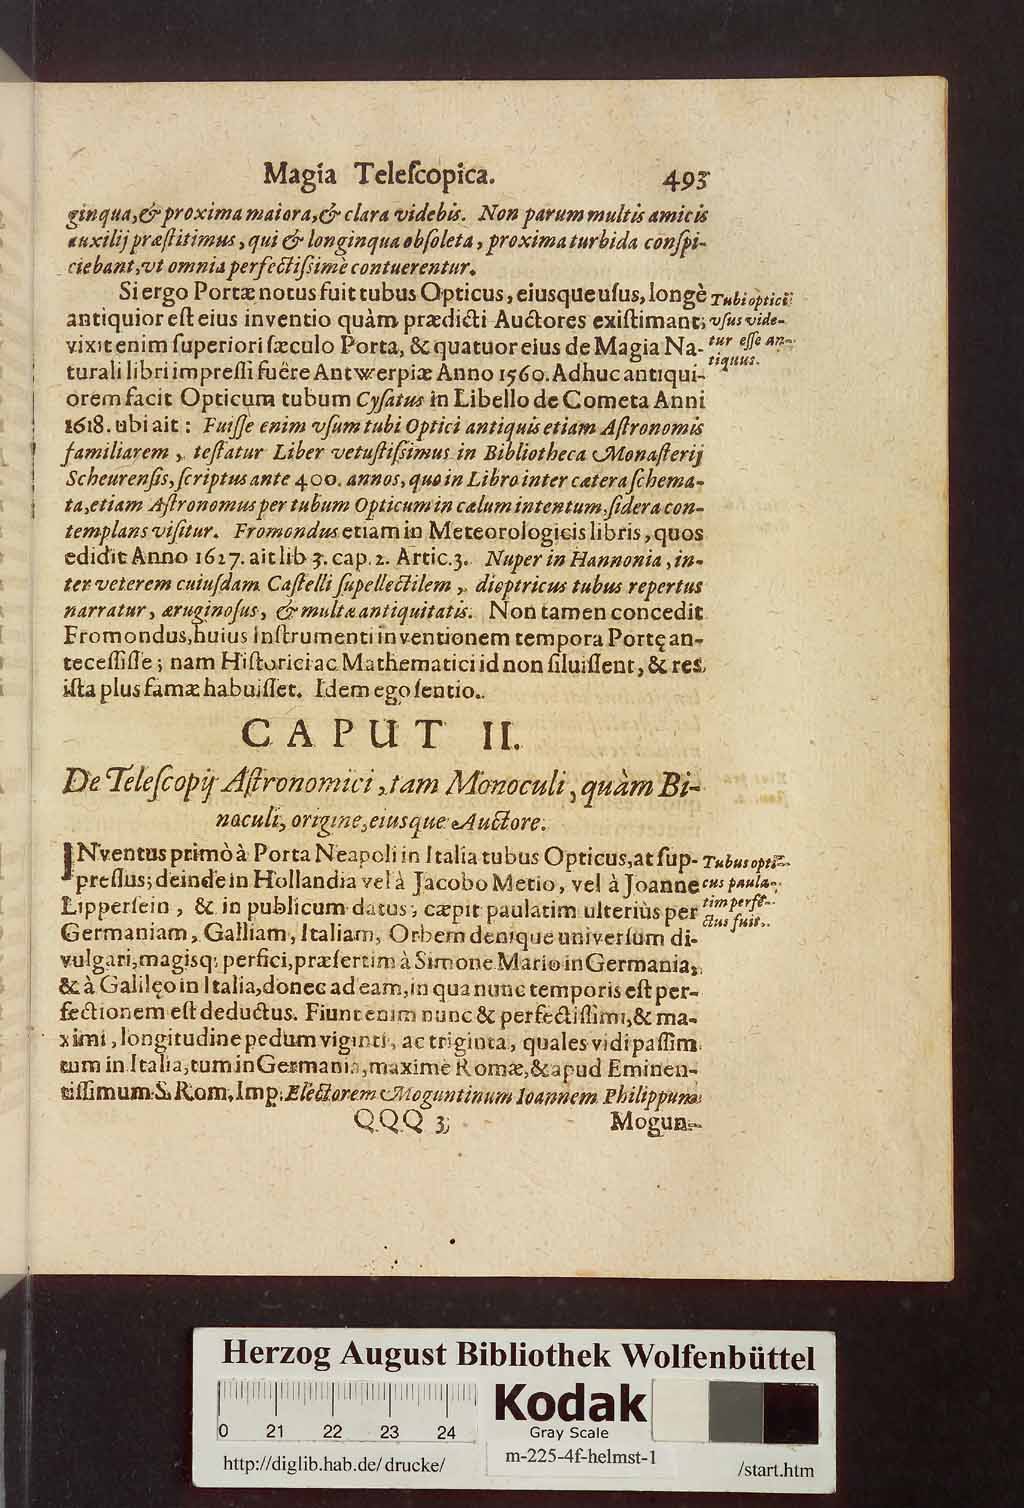 Magia Teleſcopica. 493
ginqua, & proxima maiora, & clara videbis. Non parum multis amicis
auxilij præſtitimus, qui & longinqua obſoleta, proxima turbida conſpi-
ciebant, vt omnia perfectiſsimè contuerentur.
Si ergo Portæ notus fuit tubus Opticus, eiusque uſus, longè
antiquior eſt eius inventio quàm prædicti Auctores exiſtimant;
vixit enim ſuperiori ſæculo Porta, & quatuor eius de Magia Na-
turali libri impreſſi fuêre Antwerpiæ Anno 1560. Adhuc antiqui-
orem facit Opticum tubum Cyſatus in Libello de Cometa Anni
1618. ubi ait: Fuiſſe enim vſum tubi Optici antiquis etiam Aſtronomis
familiarem, teſtatur Liber vetuſtiſsimus in Bibliotheca Monaſterij
Scheurenſis, ſcriptus ante 400. annos, quo in Libro inter cætera ſchema-
ta, etiam Aſtronomus per tubum Opticum in cælum intentum, ſidera con-
templans viſitur. Fromondus etiam in Meteorologicis libris, quos
edidit Anno 1627. ait lib 3. cap. 2. Artic. 3. Nuper in Hannonia, in-
ter veterem cuiuſdam Caſtelli ſupellectilem, dioptricus tubus repertus
narratur, æruginoſus, & multæ antiquitatis. Non tamen concedit
Fromondus, huius Inſtrumenti inventionem tempora Portę an-
teceſſiſſe; nam Hiſtorici ac Mathematici id non ſiluiſſent, & res
iſta plus famæ habuiſſet. Idem ego ſentio.
Tubi optici
vſus vide-
tur eſſe an-
tiquus.
CAPUT II.
De Teleſcopij Aſtronomici, tam Monoculi, quàm Bi-
noculi, origine, eiusque Auctore.
INventus primò à Porta Neapoli in Italia tubus Opticus, at ſup-
preſſus; deinde in Hollandia vel à Jacobo Metio, vel à Joanne
Lipperſein, & in publicum datus; cæpit paulatim ulteriùs per
Germaniam, Galliam, Italiam, Orbem denique univerſum di-
vulgari, magisq; perfici, præſertim à Simone Mario in Germania,
& à Galilęo in Italia, donec ad eam, in qua nunc temporis eſt per-
fectionem eſt deductus. Fiunt enim nunc & perfectiſſimi, & ma-
ximi, longitudine pedum viginti, ac triginta, quales vidi paſſim
tum in Italia, tum in Germania, maximè Romæ, & apud Eminen-
tiſſimum S. Rom. Imp. Electorem Moguntinum Ioannem Philippum
Tubus opti-
cus paula-
tim perfe-
ctus fuit.
QQQ 3 Mogun-
Herzog August Bibliothek Wolfenbüttel
0 21 22 23 24
Kodak
Gray Scale
http://diglib.hab.de/drucke/ m-225-4f-helmst-1 /start.htm